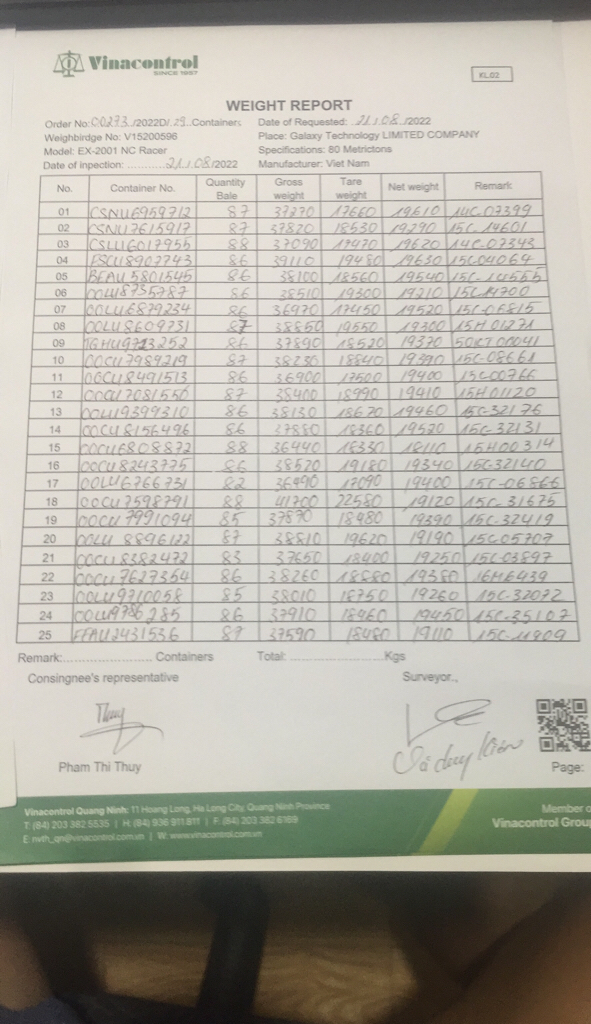 Vinacontrol
SINCE 1957
KL.02
WEIGHT REPORT
Order No: 00273 /2022D/ 29 Containers Date of Requested: 21 / 08 /2022
Weighbirdge No: V15200596 Place: Galaxy Technology LIMITED COMPANY
Model: EX-2001 NC Racer Specifications: 80 Metrictons
Date of inpection: ............21 / 08 /2022 Manufacturer: Viet Nam
No. Container No. Quantity Bale Gross weight Tare weight Net weight Remark
01 CSNU6959712 87 37270 17660 19610 14C-07399
02 CSNU7615917 87 37820 18530 19290 15C-14601
03 CSLU6017955 88 37090 17470 19620 14C-07343
04 FSCU8907743 86 39110 19480 19630 15C04064
05 BEAU5801545 86 38100 18560 19540 15C-14555
06 OOLU8735787 86 38510 19300 19210 15C14700
07 OOLU6879234 86 36970 17450 19520 15C-06815
08 OOLU8609731 87 38850 19550 19300 15H 01271
09 TGHU9713252 86 37890 18520 19370 50KT00041
10 OOCU7989219 87 38230 18840 19390 15C-08661
11 OOCU8491513 86 36900 17500 19400 15C00766
12 OOCU7081550 87 38400 18990 19410 15H01120
13 OOLU9399310 86 38130 18670 19460 15C-32176
14 OOCU8156496 86 37880 18360 19520 15C-32131
15 OOCU6808872 88 36440 18330 18110 15H00314
16 OOCU8243775 86 38520 19180 19340 15C32140
17 OOLU6766731 82 36490 17090 19400 15C-06866
18 OOCU7598791 88 41700 22580 19120 15C-31675
19 OOCU7991094 85 37870 18480 19390 15C-32419
20 OOLU8896122 87 38810 19620 19190 15C05707
21 OOCU8382472 83 37650 18400 19250 15C-03897
22 OOCU7627354 86 38260 18680 19580 16M6439
23 OOLU9710058 85 38010 18750 19260 15C-32072
24 OOLU9786285 86 37910 18460 19450 15C-35107
25 FFAU2431536 87 37590 18480 19110 15C-11909
Remark:........................ Containers Total:........................Kgs
Consingnee's representative Surveyor.,
Thuy
Pham Thi Thuy
Page:
Vinacontrol Quang Ninh: 11 Hoang Long, Ha Long City, Quang Ninh Province Member o
T: (84) 203 382 5535 | H: (84) 936 911 811 | F: (84) 203 382 6169 Vinacontrol Grou
E: nvth_qn@vinacontrol.com.vn | W: www.vinacontrol.com.vn